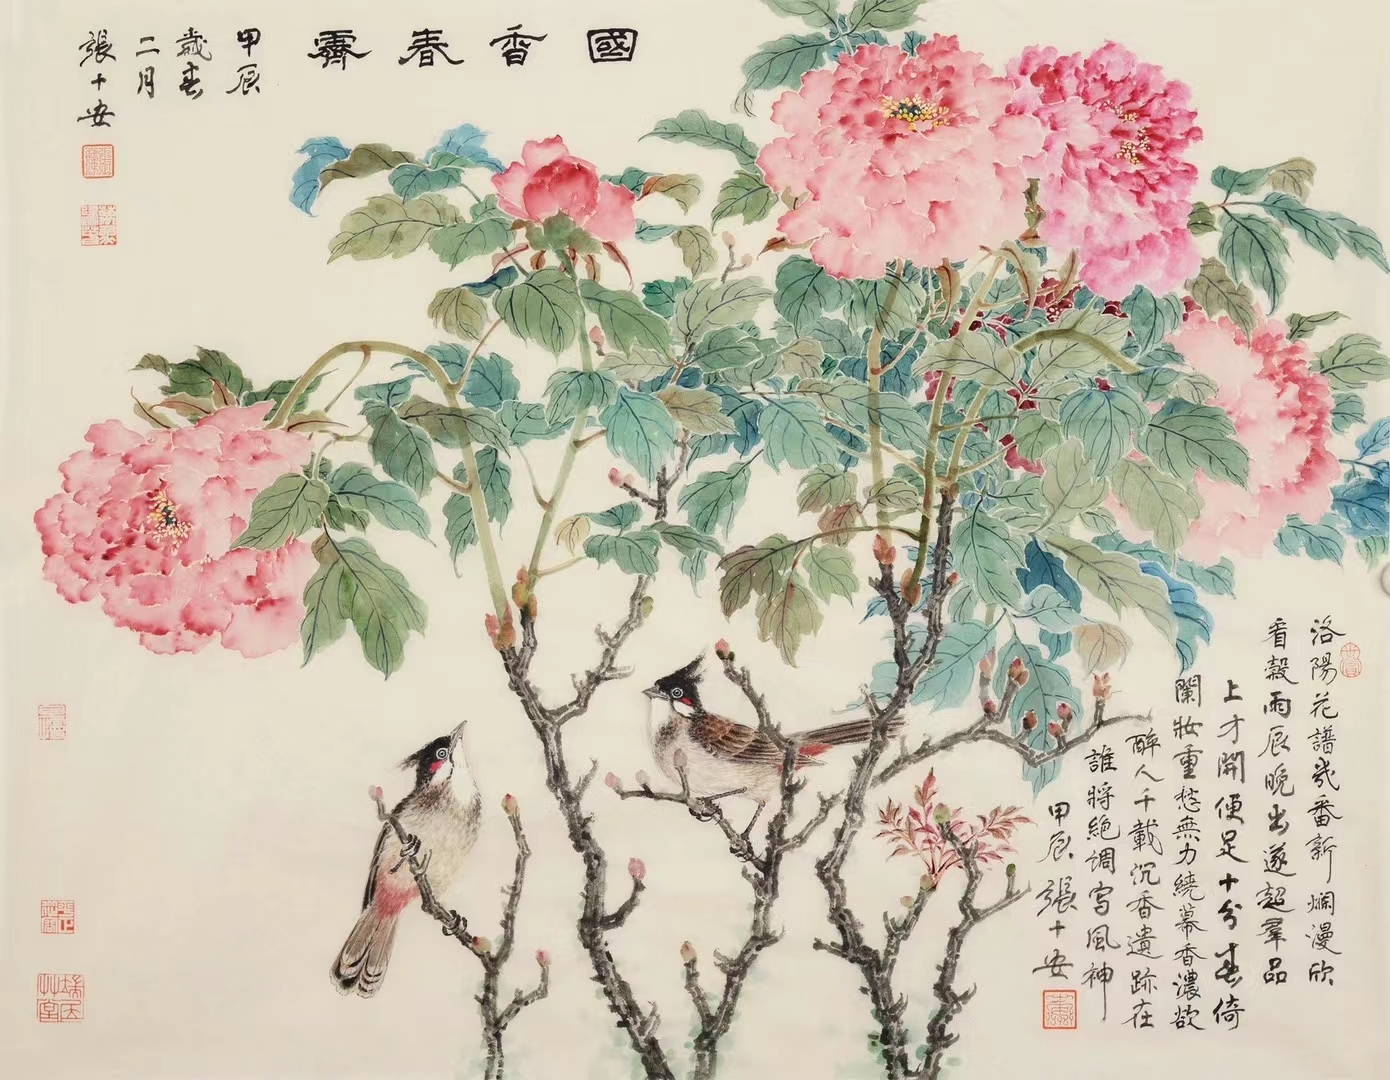 國香春霽
甲辰
歲春
二月
張十安
洛陽花譜幾番新爛漫欣
看穀雨辰晚出遂超羣品
上才開便足十分春倚
闌妝重愁無力繞幕香濃欲
醉人千載沉香遺跡在
誰將絕調寫風神
甲辰張十安